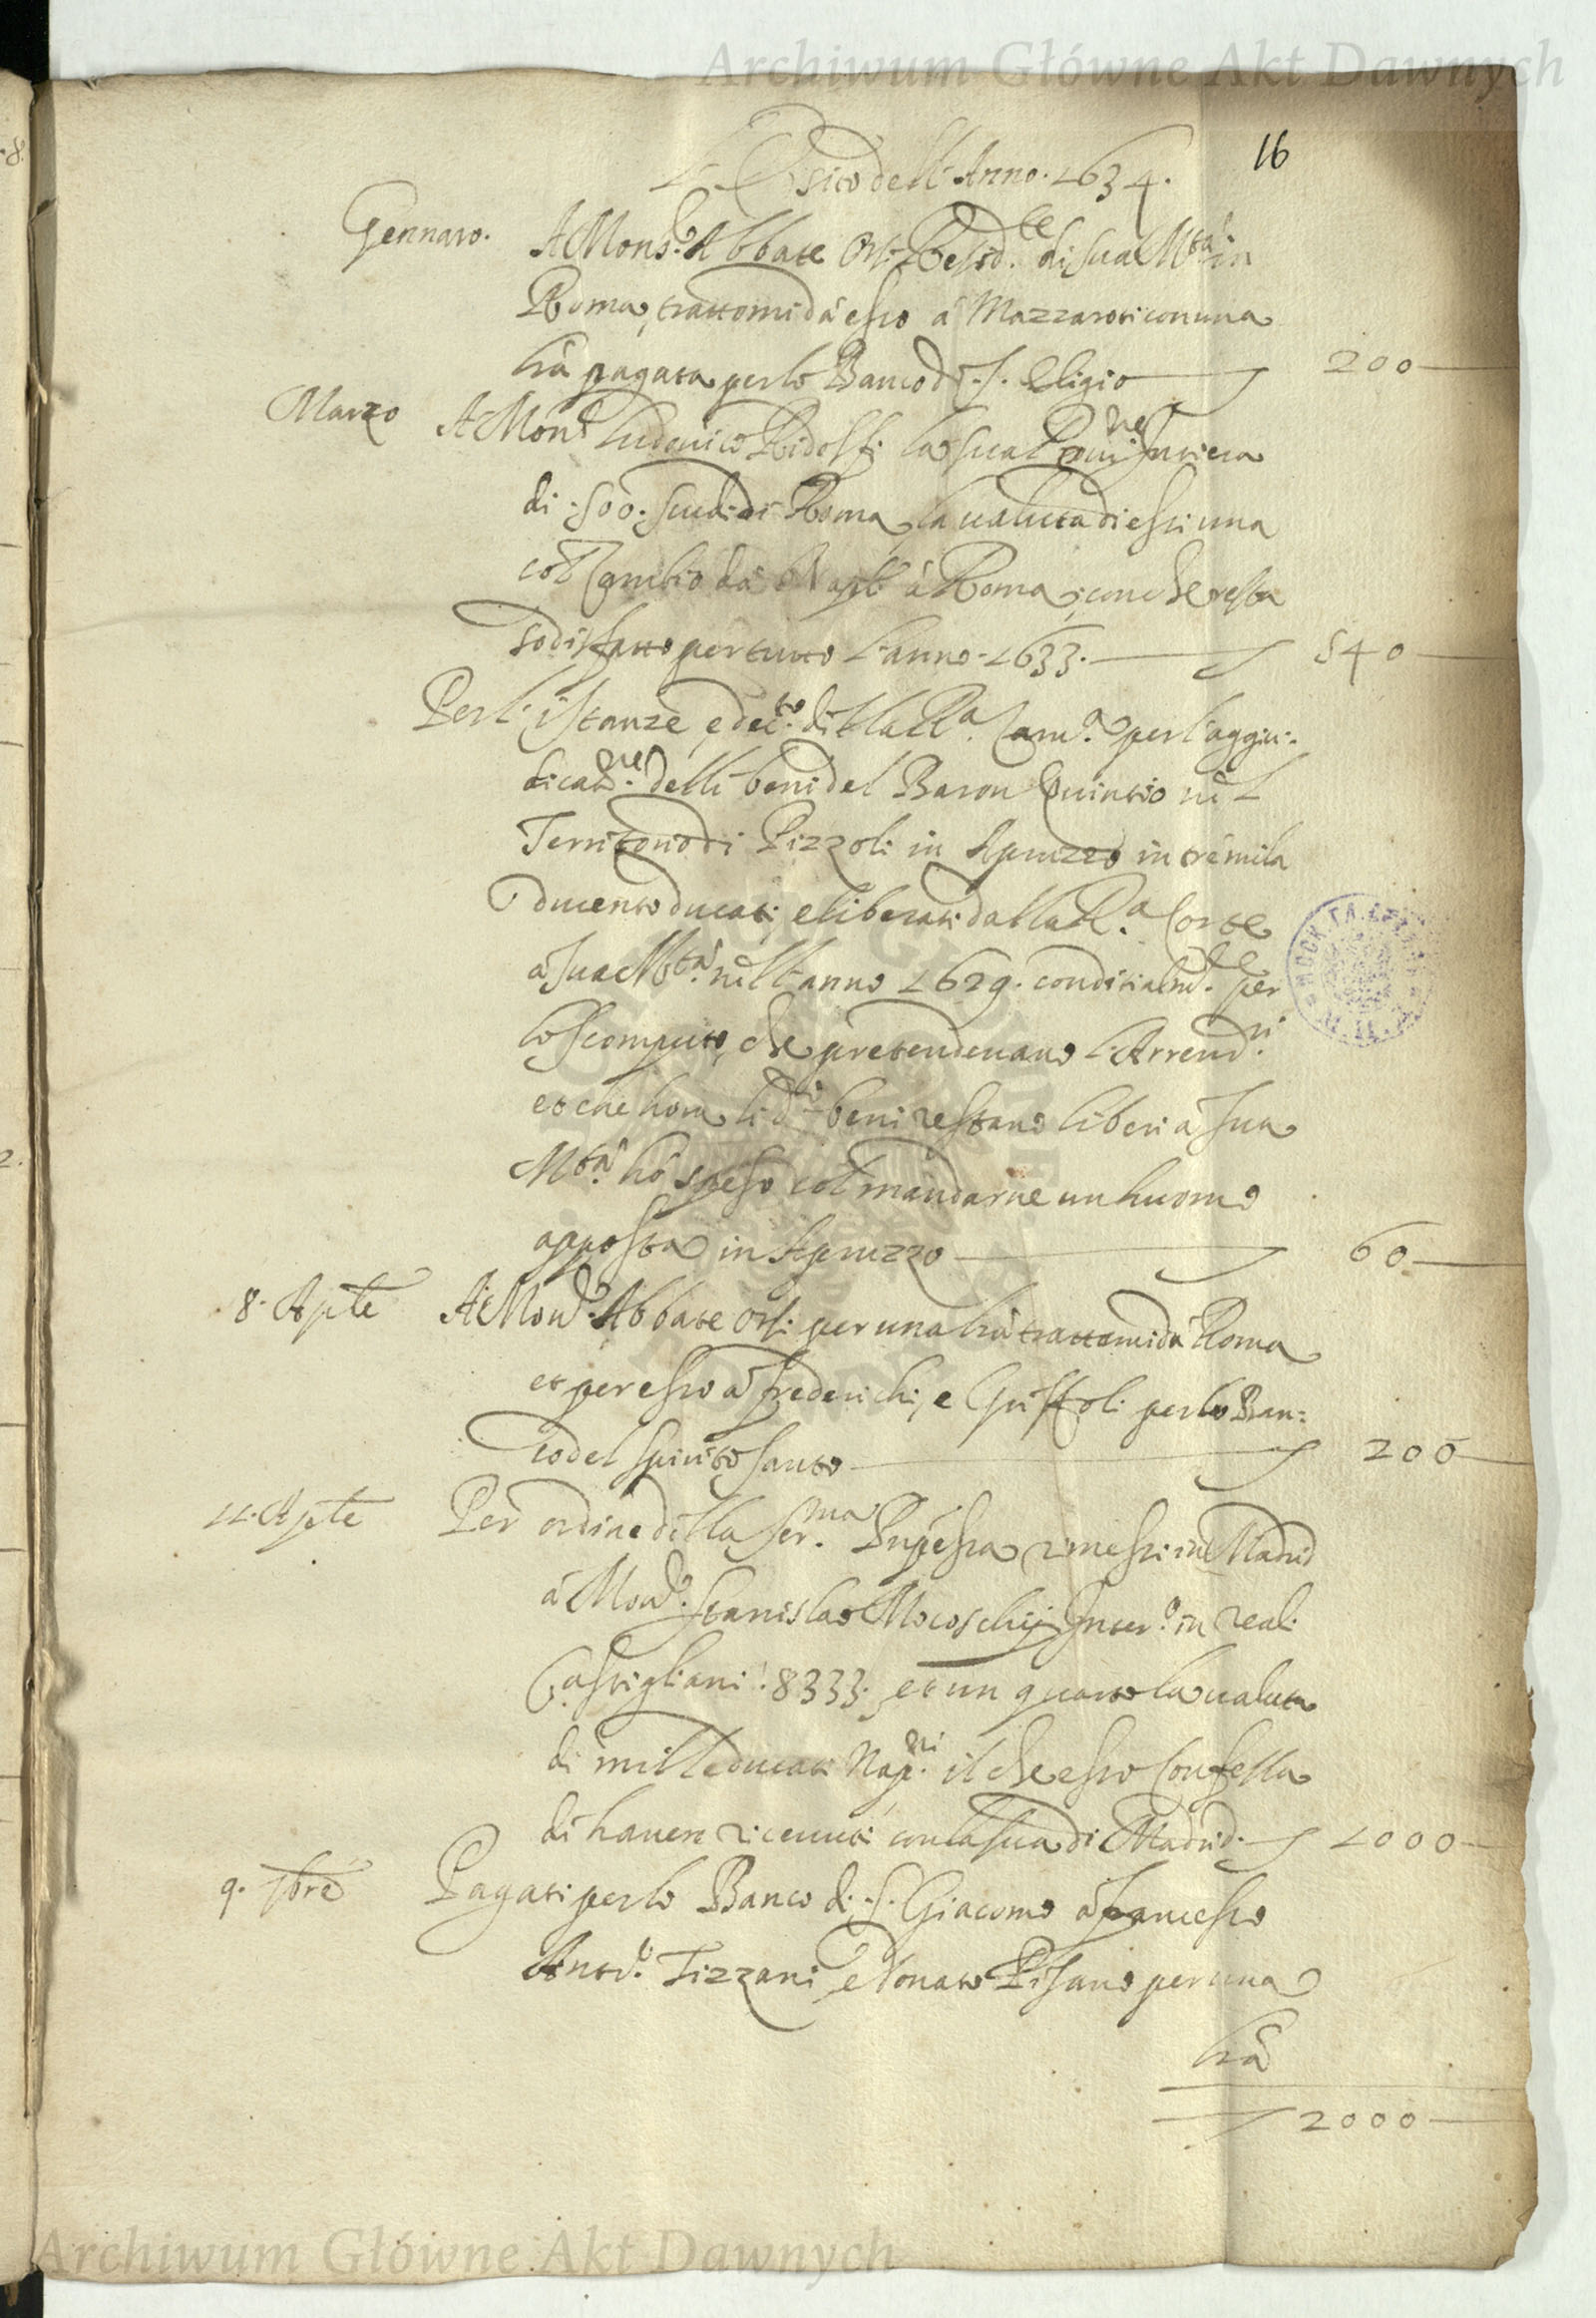 Archiwum Główne Akt Dawnych
16
L'Esito dell'Anno. 1634.
Gennaro. A Mons.r Abbate Orsi Resid.te di sua M.tà in
Roma, trattomi dà esso à Mazzarotti con una
lrã pagata per lo Banco di S. Eligio 200
Marzo A Mons.r Ludovico Ridolfi la sua Prouis.ne Intiera
di .500. scudi di Roma, la ualuta di essi una
col Cambio dà Napli à Roma, con che resta
sodisfatto per tutto l'anno. 1633. 540
Per l'istanze, e dec.to della R.a Cam.a per l'aggiu-
dicat.ne delli beni del Baron Quintio nel
Territorio di Pizzoli in Apruzzo in tremila
ducento ducati, e liberati dalla R.a Corte
à sua M.tà nell'anno 1629. conditialm.te per
lo scomputo, che pretendeuano l'Arrend.ri
et che hora li d.i beni restano liberi à sua
M.tà hò speso col mandarne un huomo
apposta in Apruzzo 60
8. Aple A Mons.r Abbate Orsi per una lrã trattami dà Roma
et per esso à Frederichi, e Griffoli per lo Ban=
co del Spirito Santo 200
11. Aple Per ordine della Ser.ma Prñpessa rimessi in Madrid
à Mons.r Stanislao Mocoschij Inter.o in reali
Castigliani .8333. et un quarto la ualuta
di mille ducati Nap.ni il che esso Confessa
di hauere riceuuti con la sua di Madrid. 1000
9. 7bre Pagati per lo Banco di S. Giacomo à Francesco
Ant.o Tizzani, e Donato Pisano per una
lrã
2000
Archiwum Główne Akt Dawnych